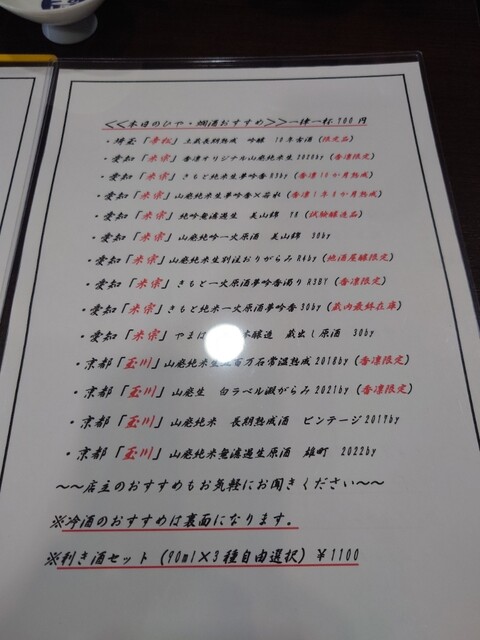 <<本日のひや・燗酒おすすめ>>一律一杯700円
・埼玉「帝松」土蔵長期熟成 吟醸 10年古酒(限定品)
・愛知「米宗」杏凛オリジナル山廃純米生2020by(杏凛限定)
・愛知「米宗」きもと純米生夢吟香R3by(杏凛10か月熟成)
・愛知「米宗」山廃純米生夢吟香×若水(杏凛1年8か月熟成)
・愛知「米宗」純吟無濾過生 美山錦 18(試験醸造品)
・愛知「米宗」山廃純吟一火原酒 美山錦 30by
・愛知「米宗」山廃純米生別注おりがらみR4by(地酒屋醸限定)
・愛知「米宗」きもと一火原酒夢吟香濁りR3BY(杏凛限定)
・愛知「米宗」きもと純米一火原酒夢吟香30by(蔵内最終在庫)
・愛知「米宗」やまは 醸造 蔵出し原酒 30by
・京都「玉川」山廃純米生 百万石常温熟成2018by(杏凛限定)
・京都「玉川」山廃生 白ラベル滓がらみ2021by(杏凛限定)
・京都「玉川」山廃純米 長期熟成酒 ビンテージ2017by
・京都「玉川」山廃純米無濾過生原酒 雄町 2022by
~~店主のおすすめもお気軽にお聞きください~~
※冷酒のおすすめは裏面になります。
※利き酒セット(90ml×3種自由選択)¥1100